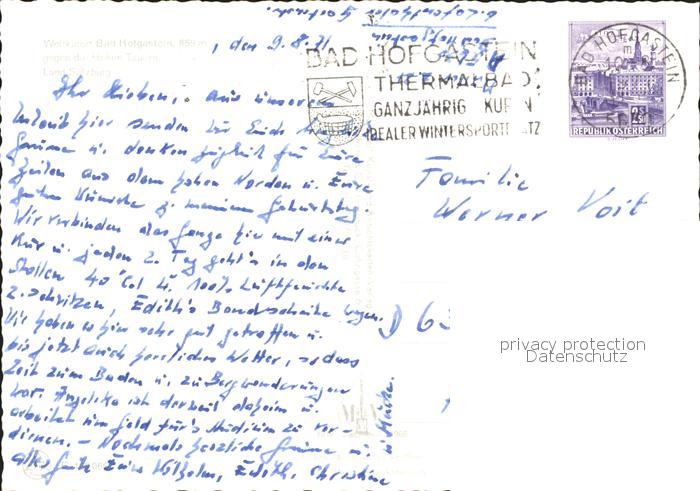 Bad Hofgastein, 859 m
gegen die Hohen Tauern,
Land Salzburg
, den 9.8.71
Ihr Lieben, aus unserem
Urlaub hier senden wir Euch
Grüsse u. danken zugleich für Eure
Zeilen aus dem hohen Norden u. Eure
guten Wünsche z. meinem Geburtstag.
Wir verbinden das Ganze hier mit einer
Kur u. jeden 2. Tag geht's in den
Stollen 40° Cel u. 100% Luftfeuchte
z. schwitzen, Edith's Bandscheibe wegen.
Wir haben es hier sehr gut getroffen u.
bis jetzt auch herrliches Wetter, so dass
Zeit zum Baden u. zu Bergwanderungen
war. Angelika ist derweil daheim u.
arbeitet um Geld für's Studium zu ver-
dienen. - Nochmals herzliche Grüsse u.
alles Gute Eure Wilhelm, Edith, Christine
BAD HOFGASTEIN
THERMALBAD
GANZJÄHRIG KUREN
IDEALER WINTERSPORTPLATZ
BAD HOFGASTEIN
REPUBLIK ÖSTERREICH
Familie
Werner Voit
D 63
privacy protection
Datenschutz